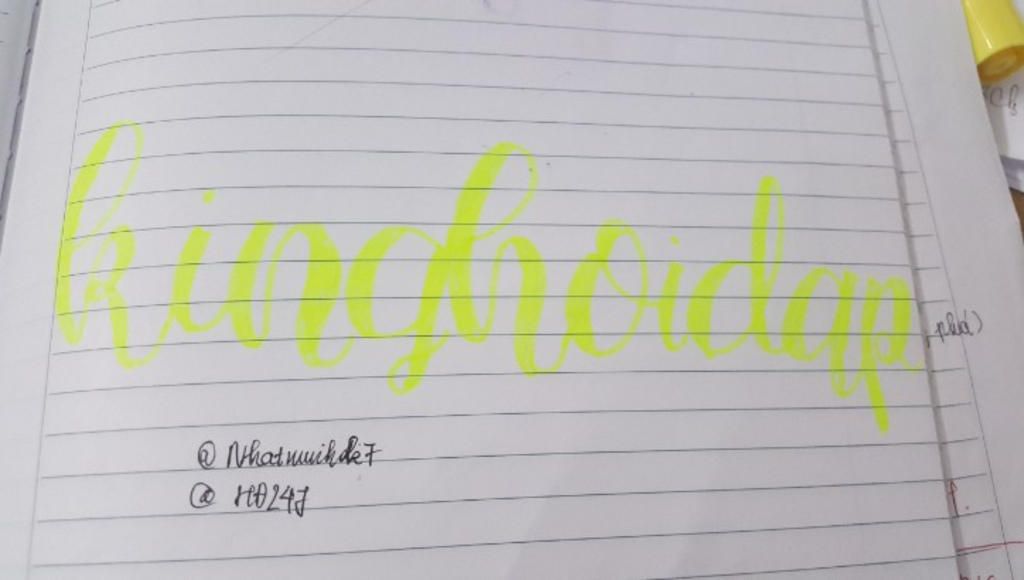 kinghoidap
@ Nhatminhdz7
@ HĐ247